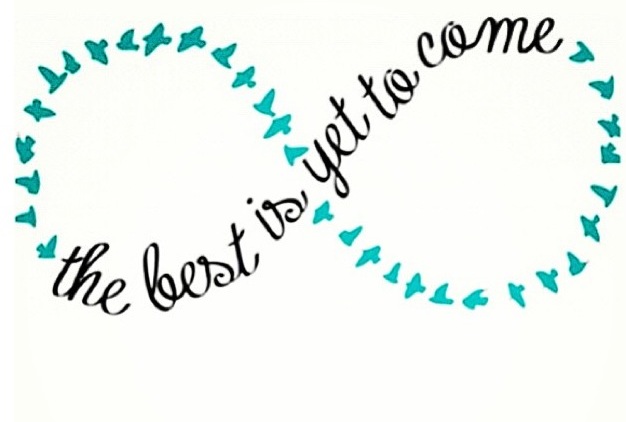 the best is yet to come